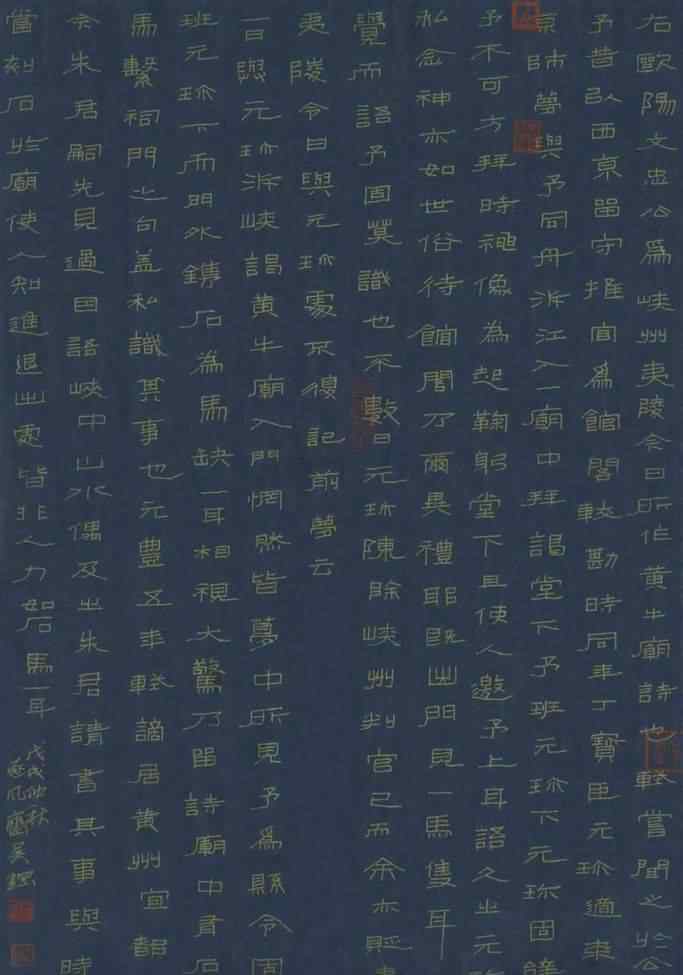 右歐陽文忠公爲峽州夷陵令日所作黃牛廟詩也軾嘗聞之於公
予昔以西京留守推官爲館閣較勘時同年丁寶臣元珍適來
京師夢與予同舟泝江入一廟中拜謁堂下予班元珍下元珍固辭
予不可方拜時神像為起鞠躬堂下且使人邀予上耳語久之元珍
私念神亦如世俗待館閣乃爾異禮耶既出門見一馬隻耳
覺而語予固莫識也不數日元珍除峽州判官已而余亦貶
夷陵令日與元珍處不復記前夢云
一日與元珍泝峽謁黃牛廟入門惘然皆夢中所見予爲縣令固
班元珍下而門外鐫石為馬缺一耳相視大驚乃留詩廟中有石
馬繫祠門之句蓋私識其事也元豊五年軾謫居黃州宜都
令朱君嗣先見過因語峽中山水偶及之朱君請書其事與詩
當刻石於廟使人知進退出處皆非人力如石馬一耳
戊戌仲秋
齋吳